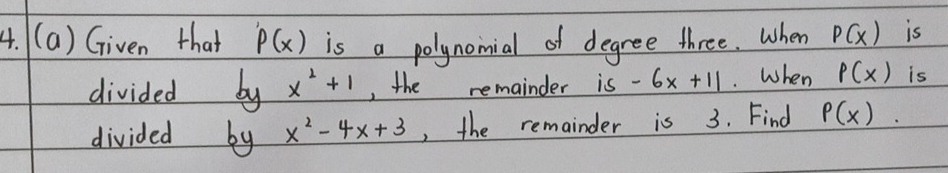 4. (a) Given that P(x) is a polynomial of degree three. When P(x) is
divided by x² + 1, the remainder is - 6x + 11. When P(x) is
divided by x² - 4x + 3, the remainder is 3. Find P(x).